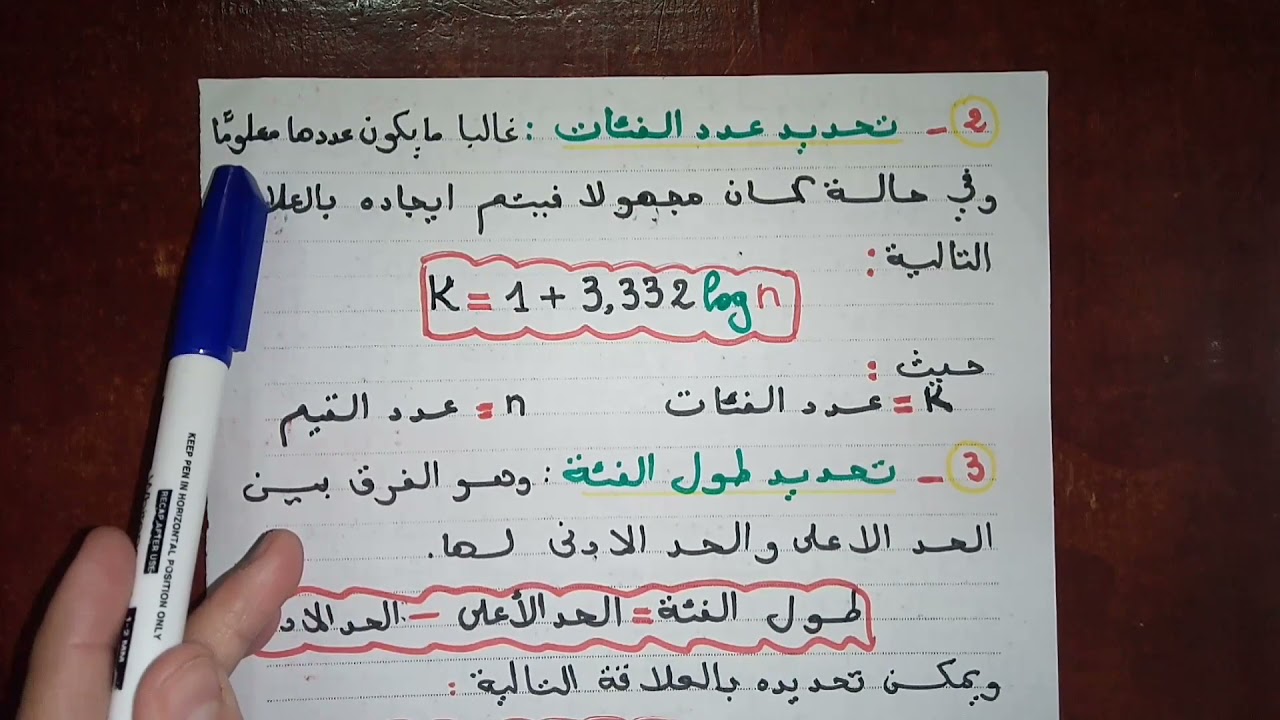 2 - تحديد عدد الفئات : غالبا ما يكون عددها معلومًا
وفي حالة كان مجهولا فيتم ايجاده
التالية :
K = 1 + 3,332 log n
حيث :
K = عدد الفئات n = عدد القيم
3 - تحديد طول الفئة : وهو الفرق بين
الحد الاعلى والحد الادنى لها.
طول الفئة = الحد الأعلى - الحد
ويمكن تحديده بالعلاقة التالية :
KEEP PEN IN HORIZONTAL POSITION ONLY
RECAP AFTER USE